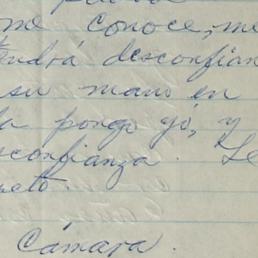 me conoce, me
tendrá desconfian
su mano en
la pongo yó, y
sconfianza. Le
eto.
Cámara.